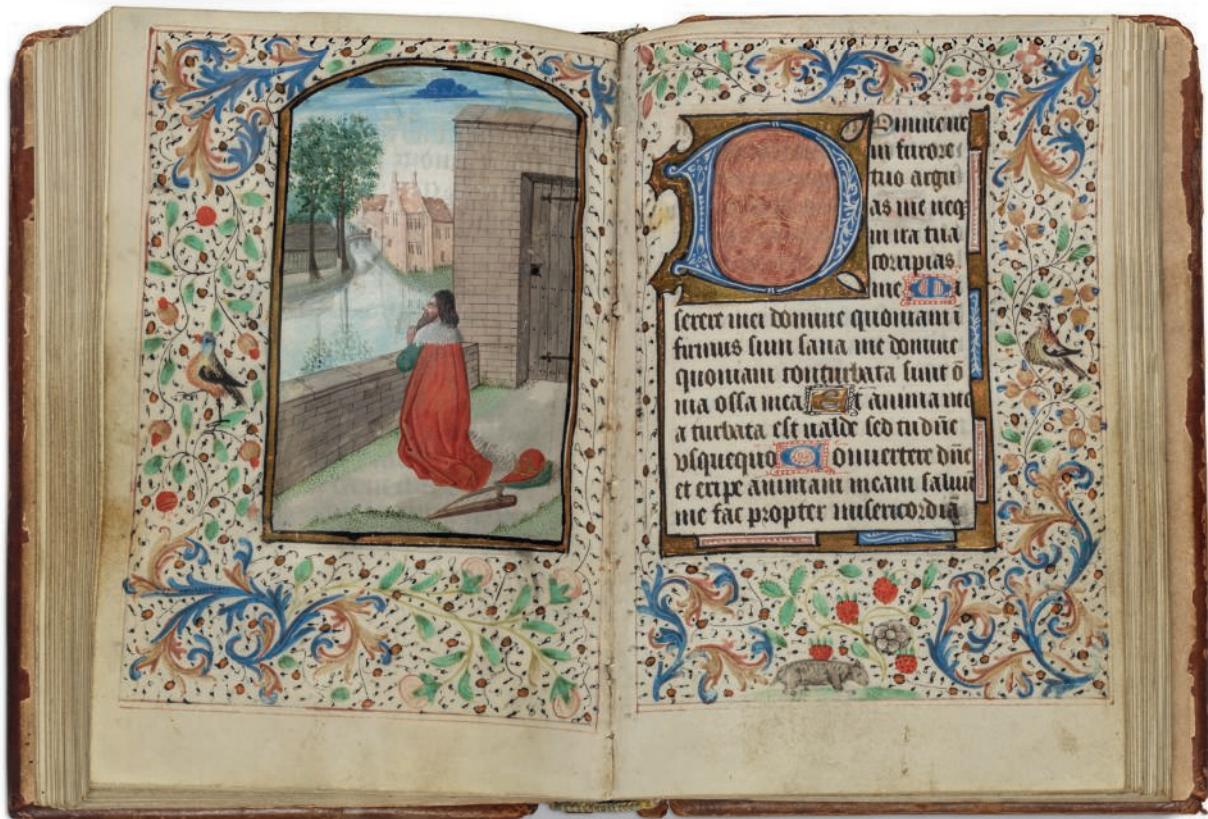 Domine ne
in furore
tuo argu
as me neqꝫ
in ira tua
corripias
me Mi
serere mei domine quoniam ī
firmus sum sana me domine
quoniam conturbata sunt ō
nia ossa mea Et anima me
a turbata est ualde sed tu dn̄e
vsquequo Conuertere dn̄e
et eripe animam meam saluū
me fac propter misericordiā